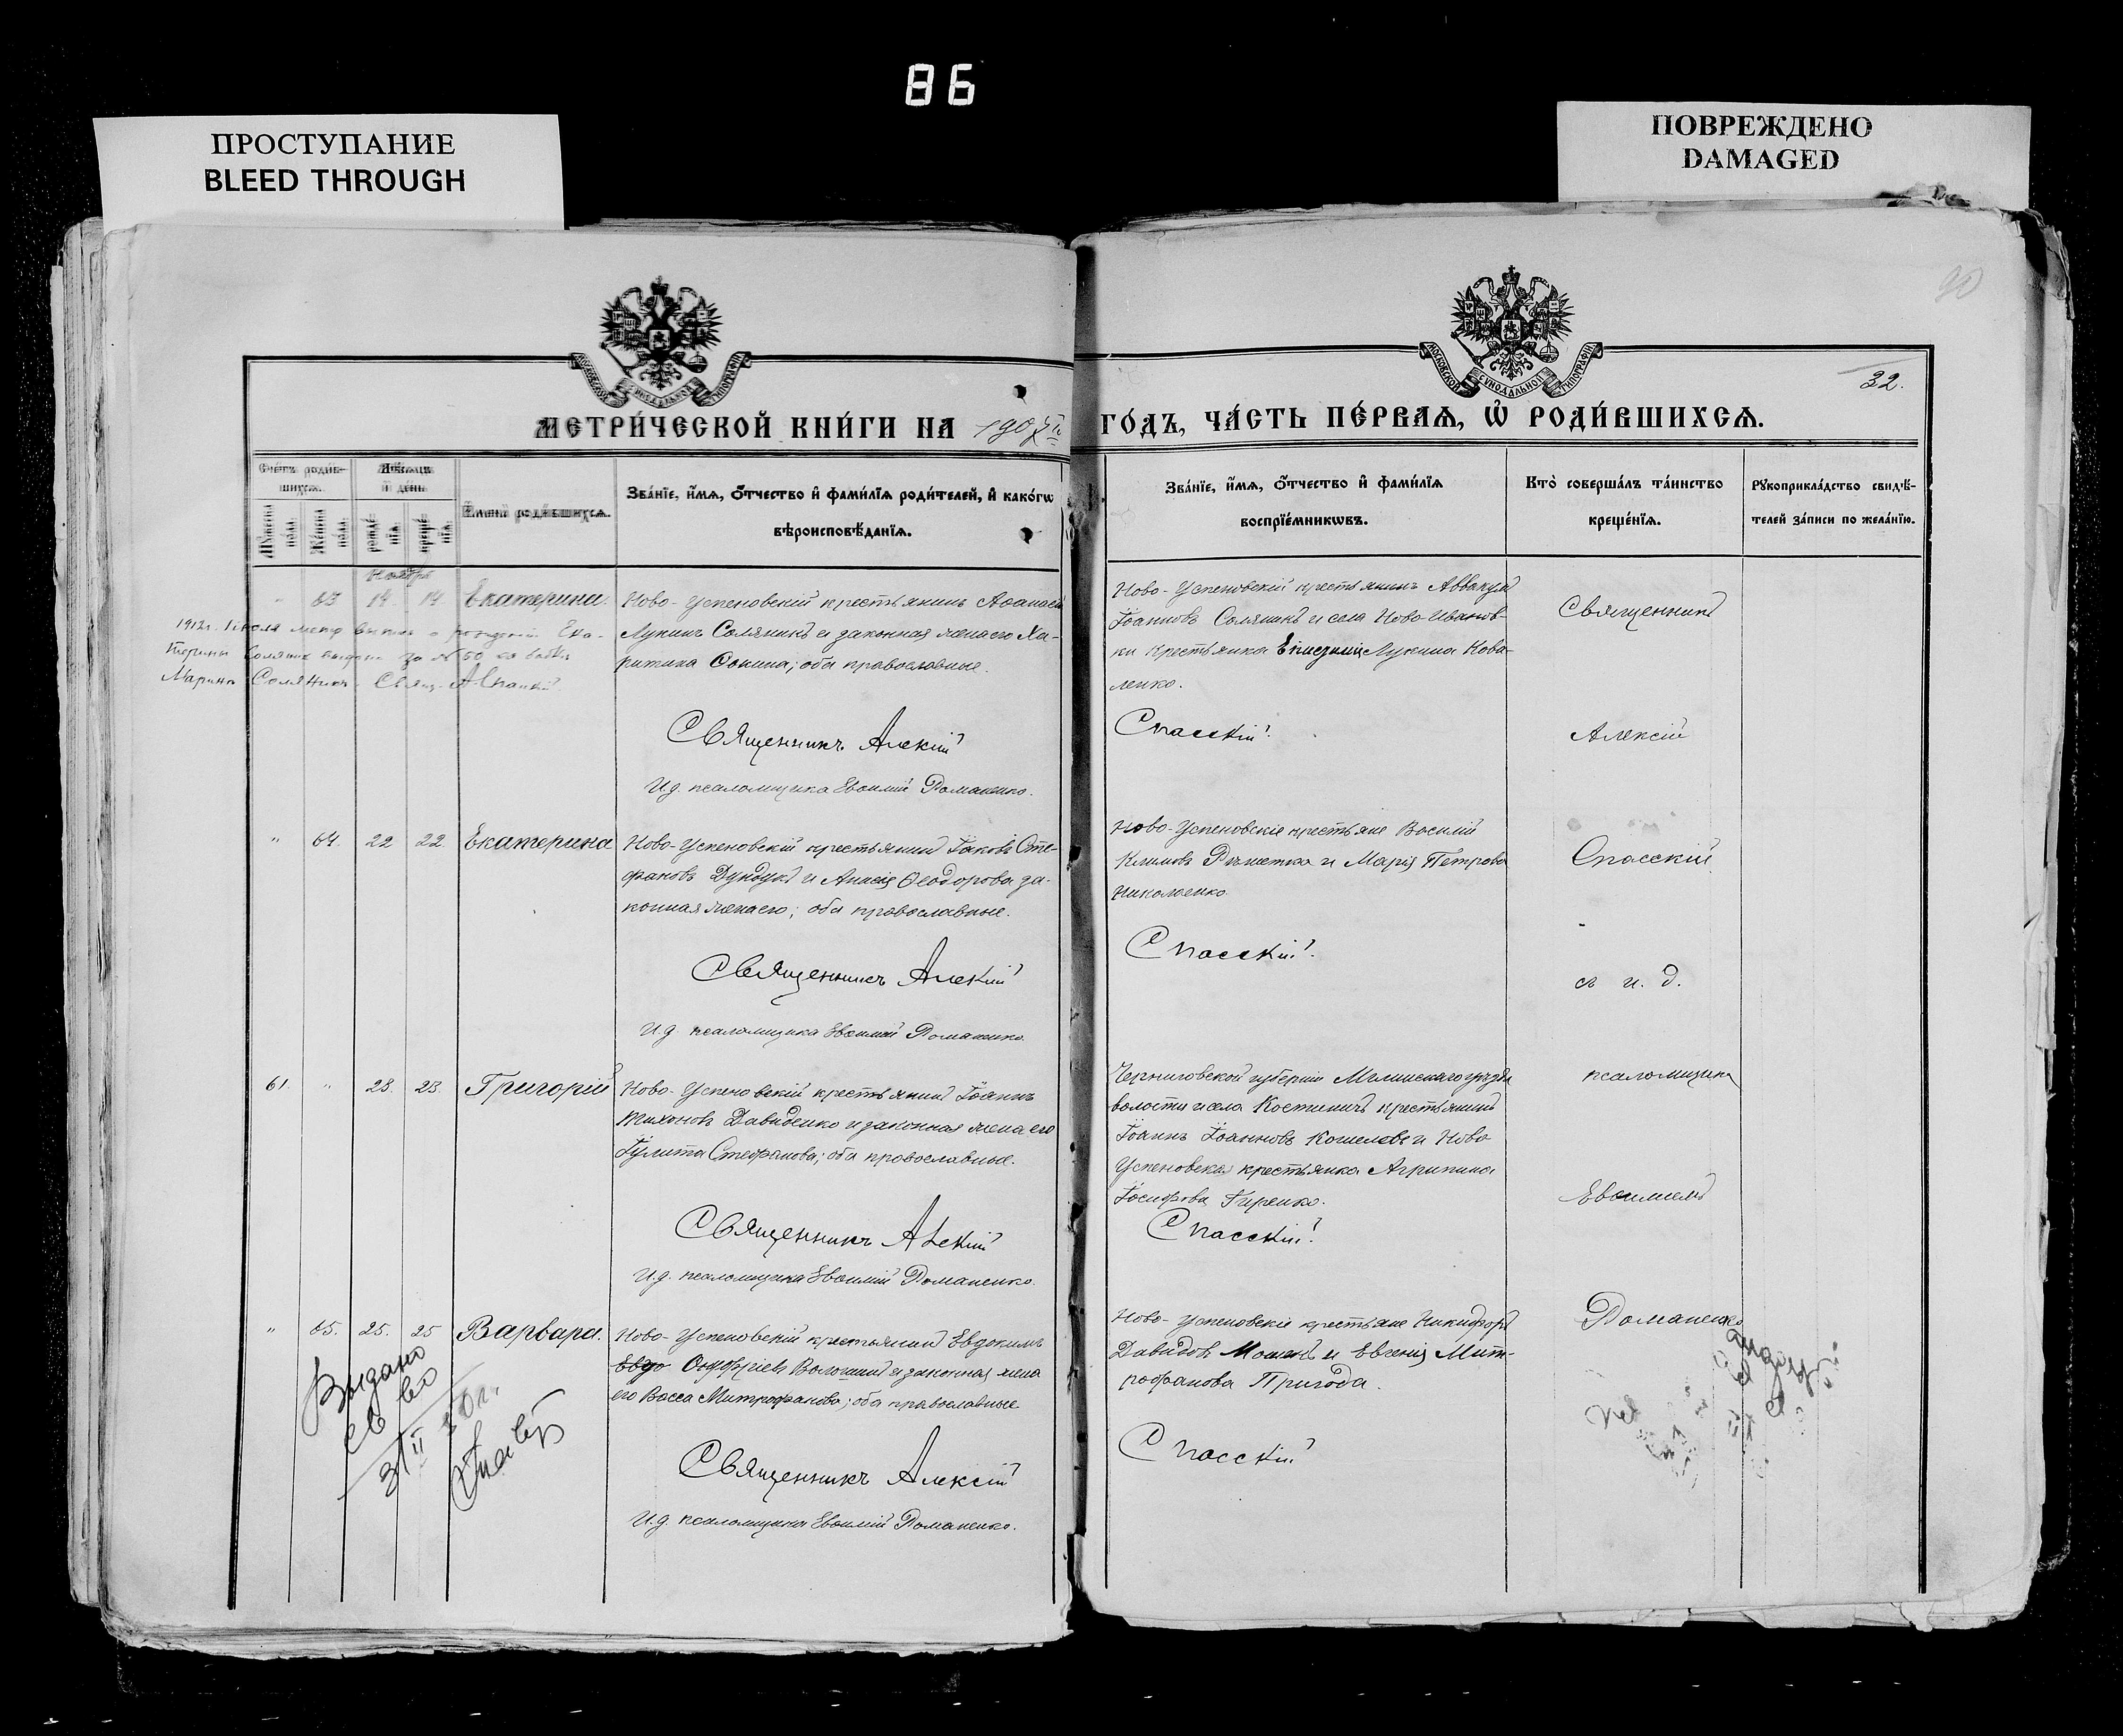 86
ПРОСТУПАНИЕ
BLEED THROUGH
ПОВРЕЖДЕНО
DAMAGED
МЕТРИ́ЧЕСКОЙ КНИ́ГИ НА 190
ГО́ДЪ, ЧА́СТЬ ПЕ́РВАѦ, Ѡ҆ РОДИ́ВШИХСѦ.
32.
Сче́тъ роди́в-
шихсѧ.
Мꙋ́жеска пола̀.
Же́нска пола̀.
Мѣ́сѧцъ
и҆ де́нь
рожде́-
нїѧ.
креще́-
нїѧ.
И҆мена̀ роди́вшихсѧ.
Зва́нїе, и҆́мѧ, ѻ҆́тчество и҆ фами́лїѧ роди́телей, и҆ како́гѡ
вѣроисповѣ́данїѧ.
Зва́нїе, и҆́мѧ, ѻ҆́тчество и҆ фами́лїѧ
воспрїе́мникѡвъ.
Кто̀ соверша́лъ та́инство
креще́нїѧ.
Рꙋкоприкла́дство свидѣ́-
телей за́писи по жела́нїю.
Ноября
" 63 14. 14 Екатерина.
Ново-Успеновскій крестьянинъ Аѳанасій
Лукинъ Соляникъ и законная жена его Ха-
ритина Сокина; оба православные.
1912г. Іюля метр выпись о рожденіи Ека-
терины Соляник выдана за № 50
Марины Соляникъ. Свящ. АСпасскій.
Священникъ Алексій
И.д. псаломщика Евѳимій Романенко.
Ново-Успеновскій крестьянинъ Аввакумъ
Іоанновъ Соляникъ и села Ново-Иванов-
ки крестьянка Лукина Кова-
ленко.
Спасскій.
Священникъ
Алексій
" 64. 22 22. Екатерина
Ново-Успеновскій крестьянинъ Іаковъ Сте-
фановъ Дундукъ и Анисія Ѳеодорова за-
конная жена его; оба православные.
Священникъ Алексій
И.д. псаломщика Евѳимій Романенко.
Ново-Успеновскіе крестьяне Василій
Климовъ Рѣшетка и Марія Петрова
Николаенко
Спасскій.
Спасскій
съ и. д.
61. " 23. 23. Григорій
Ново-Успеновскій крестьянинъ Іоаннъ
Тихоновъ Давиденко и законная жена его
Іулитта Стефанова; оба православные.
Священникъ Алексій
И.д. псаломщика Евѳимій Романенко.
Черниговской губерніи Мглинскаго уѣзда
волости и села Костеничъ крестьянинъ
Іоаннъ Іоанновъ Кошелевъ и Ново
Успеновская крестьянка Агрипина
Іосифова Гиренко.
Спасскій.
псаломщика
Евѳиміемъ
" 65. 25. 25 Варвара.
Ново-Успеновскій крестьянинъ Евдокимъ
Онуфріевъ Волошинъ и законная жена
его Васса Митрофанова; оба православные
Священникъ Алексій
И.д. псаломщика Евѳимій Романенко.
Ново-Успеновскіе крестьяне Никифоръ
Давидовъ Мошенъ и Евгенія Мит-
рофанова Пригода.
Спасскій
Романенко
Выдано
св во
3/II 30г.